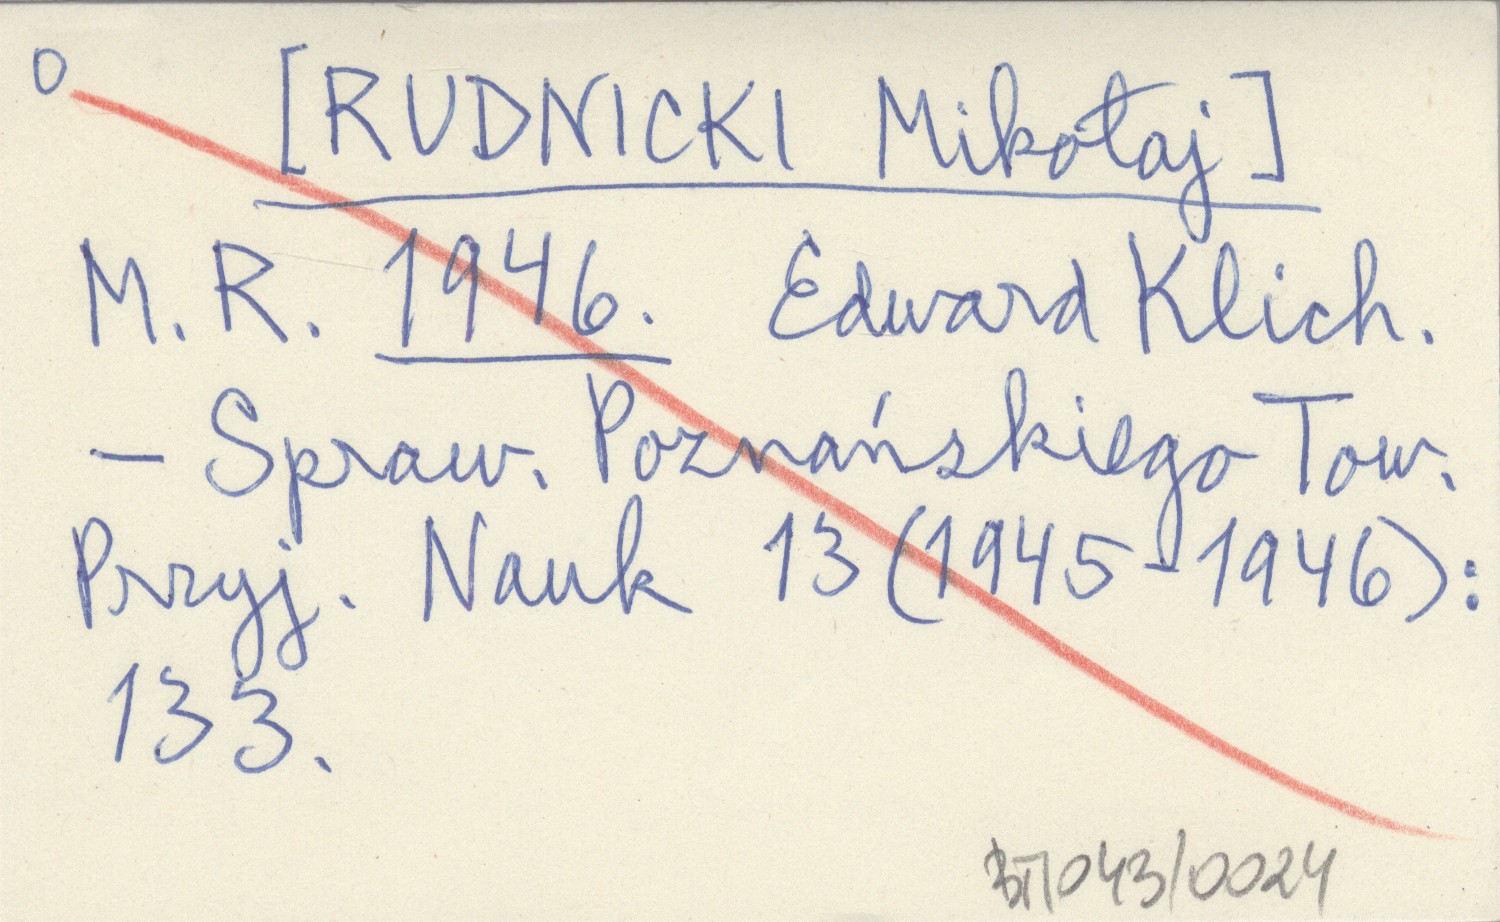 0
[RUDNICKI Mikołaj]
M. R. 1946. Edward Klich.
– Spraw. Poznańskiego Tow.
Przyj. Nauk 13 (1945-1946):
133.
ВП043/0024